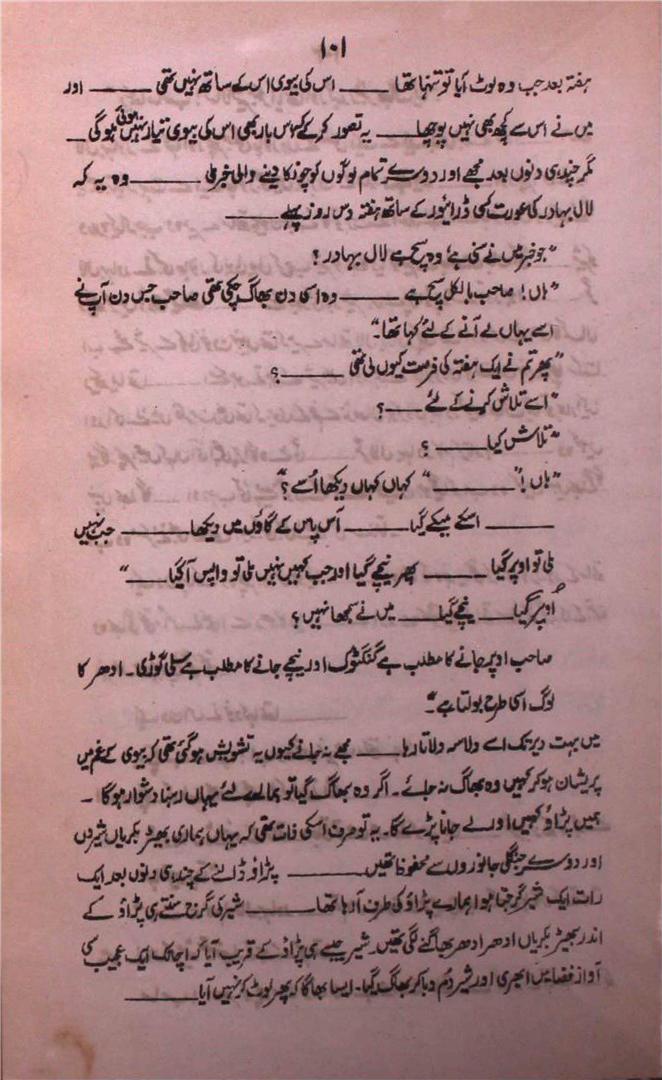 ۱۰۱
ہفتہ بعد جب وہ لوٹ آیا تو تنہا تھا ــــــ اس کی بیوی اس کے ساتھ نہیں تھی ــــــ اور
میں نے اس سے کچھ بھی نہیں پوچھا ــــــ یہ تصور کرکے کہ اس بار بھی اس کی بیوی تیار نہیں ہوئی ہوگی ــ
مگر چند ہی دنوں بعد مجھے اور دوسرے تمام لوگوں کو چونکا دینے والی خبر ملی ــــــ وہ یہ کہ
لال بہادر کی عورت کسی ڈرائیور کے ساتھ ہفتہ دس روز پہلے ــــــ
"جو خبر میں نے سنی ہے، وہ سچ ہے لال بہادر؟
"ہاں! صاحب بالکل سچ ہے ــــــ وہ اسی دن بھاگ چکی تھی صاحب جس دن آپ نے
اسے یہاں لے آنے کے لئے کہا تھا۔"
"پھر تم نے ایک ہفتہ کی فرصت کیوں لی تھی ــــــ؟
"اسے تلاش کرنے کے لئے ــــــ؟
"تلاش کیا ــــــ؟
"ہاں!" ــــــ" کہاں کہاں دیکھا اُسے؟"
ــــــ اسکے میکے گیا ــــــ آس پاس کے گاؤں میں دیکھا ــــــ جب نہیں
ملی تو اوپر گیا ــــــ پھر نیچے گیا اور جب کہیں نہیں ملی تو واپس آگیا ــــــ"
اُوپر گیا ــــــ نیچے گیا ــــــ میں نے سمجھا نہیں؟
صاحب اوپر جانے کا مطلب ہے گنگٹوک اور نیچے جانے کا مطلب ہے سلی گوڑی۔ ادھر کا
لوگ اسی طرح بولتا ہے۔"
میں بہت دیر تک اسے دلاسہ دلاتا رہا ــــــ مجھے نہ جانے کیوں یہ تشویش ہوگئی تھی کہ بیوی کے غم میں
پریشان ہوکر کہیں وہ بھاگ نہ جائے۔ اگر وہ بھاگ گیا تو ہمارے لئے یہاں رہنا دشوار ہوگا ۔
ہمیں پڑاؤ کہیں اور لے جانا پڑے گا۔ یہ تو صرف اسکی ذات تھی کہ یہاں ہماری بھیڑ بکریاں شیروں
اور دوسرے جنگلی جانوروں سے محفوظ تھیں ــــــ پڑاؤ ڈالنے کے چند ہی دنوں بعد ایک
رات ایک شیر گرجتا ہوا ہمارے پڑاؤ کی طرف آرہا تھا ــــــ شیر کی گرج سنتے ہی پڑاؤ کے
اندر بھیڑ بکریاں ادھر ادھر بھاگنے لگی تھیں۔ شیر جیسے ہی پڑاؤ کے قریب آیا کہ اچانک ایک عجیب سی
آواز فضا میں ابھری اور شیر دُم دبا کر بھاگ گیا۔ ایسا بھاگا کہ پھر لوٹ کر نہیں آیا ــــــ